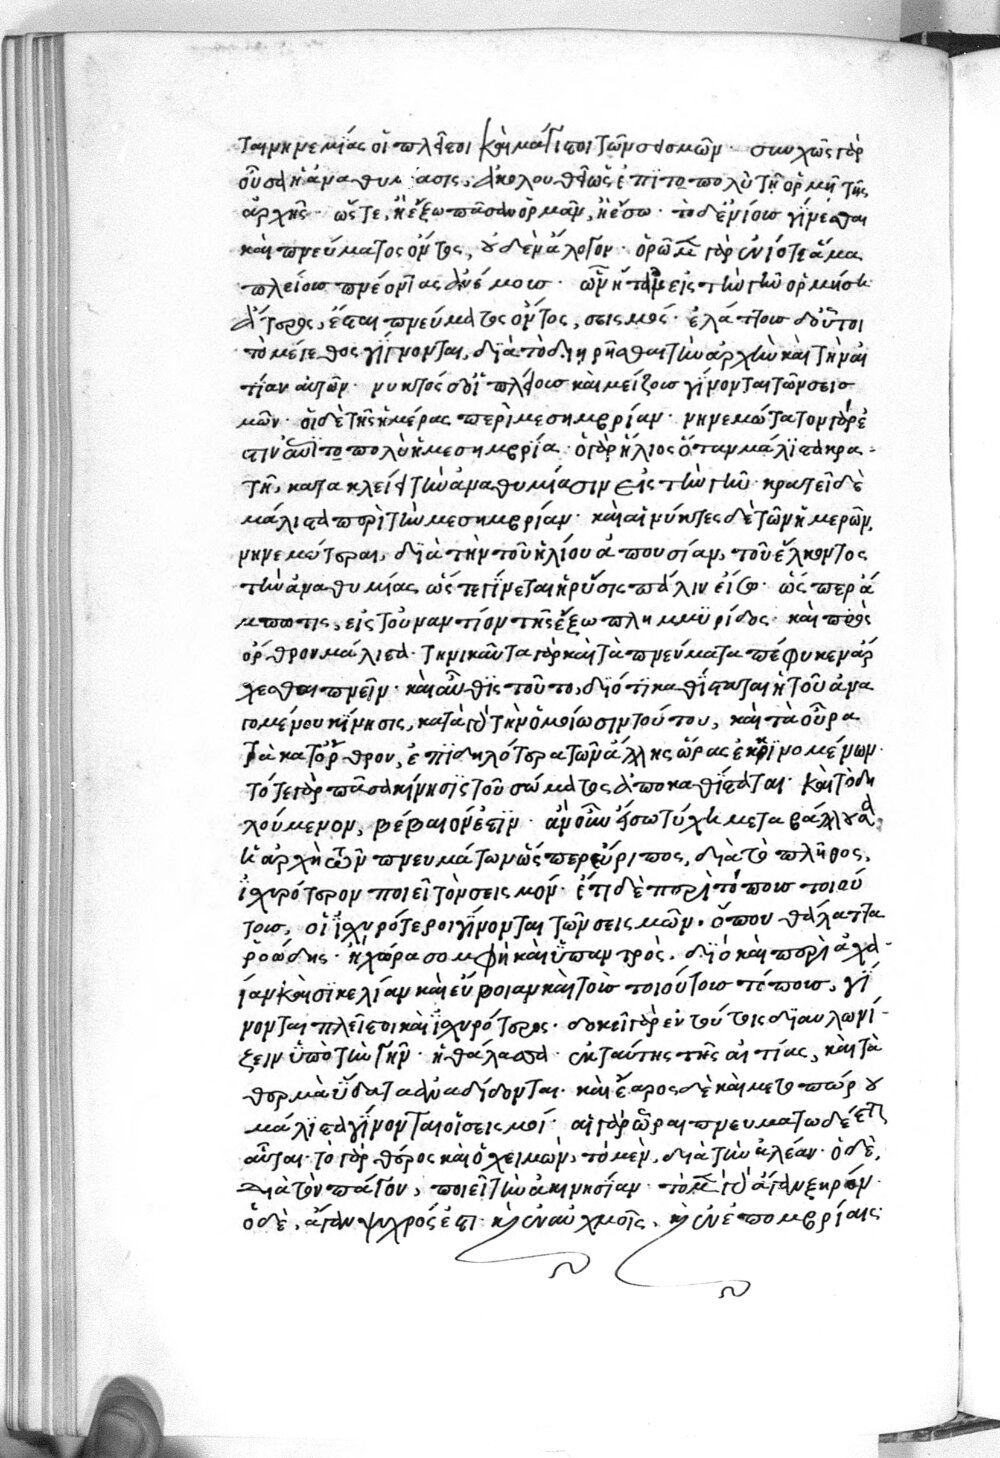 ται νηνεμίας οἱ πλεῖστοι καὶ μέγιστοι τῶν σεισμῶν· συνεχῶς γὰρ
οὖσα ἡ ἀναθυμίασις, ἀκολουθεῖ ὡς ἐπὶ το πολὺ τῇ ὁρμῇ τῆς
ἀρχῆς· ὥστε, ἢ ἔξω πᾶσαν ὁρμᾶν, ἢ ἔσω· τὸ δ' ἐνίους γίνεσθαι
καὶ πνεύματος ὄντος, οὐδὲν ἄλογον· ὁρῶμεν γὰρ ἐνίοτε ἅμα
πλείους πνέοντας ἀνέμους· ὧν ὅταν εἰς τὴν γῆν ὁρμήση
ἅτερος, ἔσται πνεύματος ὄντος, σεισμός· ἐλάττους δ' οὗτοι
τὸ μέγεθος γίγνονται, διὰ τὸ διῃρῆσθαι τὴν ἀρχὴν καὶ τὴν αἰ
τίαν αὐτῶν· νυκτός δ' οἱ πλείους καὶ μείζους γίνονται τῶν σεισ
μῶν· οἱ δὲ τῆς ἡμέρας περὶ μεσημβρίαν· νηνεμώτατον γάρ ἐ
στιν ὡς ἐπὶ το πολὺ ἡ μεσημβρία· ὁ γὰρ ἥλιος ὅταν μάλιστα κρα
τῇ, κατακλείει τὴν ἀναθυμίασιν εἰς τὴν γῆν· κρατεῖ δὲ
μάλιστα περὶ τὴν μεσημβρίαν· καὶ αἱ νύκτες δὲ τῶν ἡμερῶν,
νηνεμώτεραι, διὰ τὴν τοῦ ἡλίου ἀπουσίαν, τοῦ ἕλκοντος
τὴν ἀναθυμίας ὥστε γίνεται ἡ ῥύσις πάλιν εἴσω· ὥσπερ ἄ
μπωτις, εἰς τοὐναντίον τῆς ἔξω πλημμυρίδος· καὶ πρὸς
ὄρθρον μάλιστα· τηνικαῦτα γὰρ καὶ τὰ πνεύματα πέφυκεν ἄρ
χεσθαι πνεῖν· καὶ αὖθις τοῦτο, διότι καθίσταται ἡ τοῦ ἀνα
γομένου κίνησις, κατὰ γὰρ τὴν ὁμοίωσιν τούτου, καὶ τὰ οὖρα
τὰ κατ' ὄρθρον, ἐπιδηλότερα τῶν ἄλλης ὥρας ἐκκρινομένων·
τότε γὰρ πᾶσα κίνησις τοῦ σώματος ἀποκαθίσταται· καὶ τὸ δη
λούμενον, βέβαιόν ἐστιν· ἂν οὖν εἴσω τύχη μεταβάλλουσα
ἡ ἀρχὴ τῶν πνευμάτων ὥσπερ εὔριπος, διὰ τὸ πλῆθος,
ἰσχυρότερον ποιεῖ τὸν σεισμόν· ἔτι δὲ περὶ τόπους τοιού
τους, οἱ ἰσχυρότεροι γίνονται τῶν σεισμῶν· ὅπου θάλαττα
ῥοώδης· ἢ χώρα σομφὴ καὶ ὕπαντρος· διὸ καὶ περὶ ἀχα-
ίαν καὶ σικελίαν καὶ εὔβοιαν καὶ τοὺς τοιούτους τόπους, γί
νονται πλεῖστοι καὶ ἰσχυρότερος· δοκεῖ γὰρ ἐν τούτοις διαυλωνί-
ζειν ὑπὸ τὴν γῆν· ἡ θάλασσα· ἐκ ταύτης τῆς αἰτίας, καὶ τὰ
θερμὰ ὕδατα ἀναδίδονται· καὶ ἔαρος δὲ καὶ μετοπώρου
μάλιστα γίνονται οἱ σεισμοί· αἱ γὰρ ὧραι πνευματωδέσταται
αὗται· τὸ γὰρ θέρος καὶ ὁ χειμὼν, τὸ μὲν, διὰ τὴν ἀλέαν· ὁ δὲ,
διὰ τὸν πάγον, ποιεῖ τὴν ἀκινησίαν· τὸ μὲν γὰρ ἄγαν ξηρόν·
ὁ δὲ, ἄγαν ψυχρός ἐστι· καὶ ἐν αὐχμοῖς, καὶ ἐν ἐπομβρίαις·